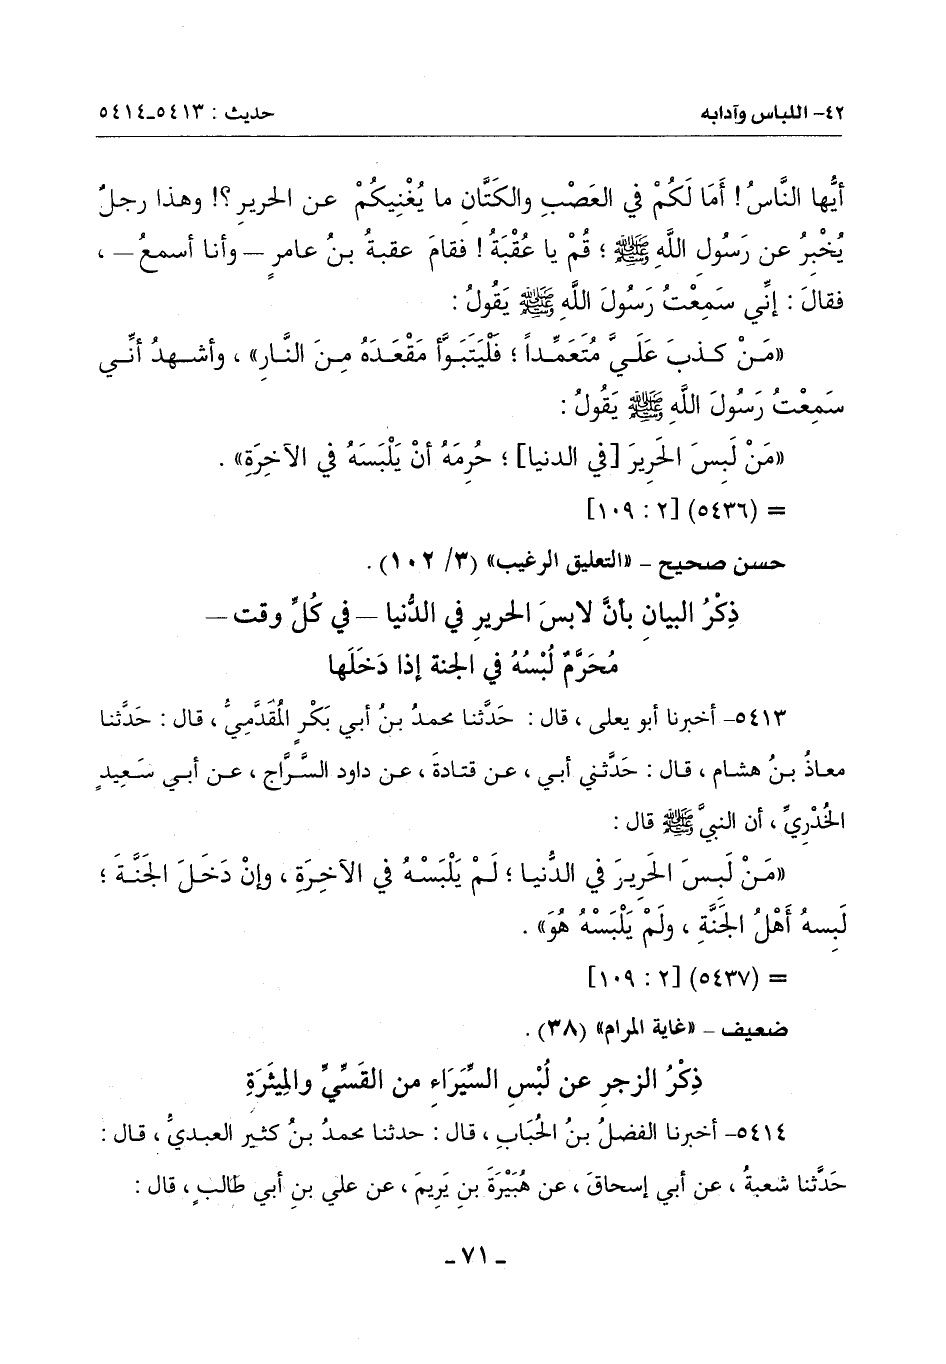 ٤٢- اللباس وآدابه حديث : ٥٤١٣ـ٥٤١٤
أيُّها النَّاسُ! أَمَا لَكُمْ في العَصْبِ والكَتَّانِ ما يُغْنِيكُمْ عن الحرير؟! وهذا رجلٌ
يُخْبِرُ عن رَسُولِ اللَّهِ ﷺ ؛ قُمْ يا عُقْبَةُ! فقامَ عقبةُ بنُ عامرٍ – وأنا أسمعُ – ،
فقالَ : إنِّي سَمِعْتُ رَسُولَ اللَّهِ ﷺ يَقُولُ :
«مَنْ كذبَ عَلَيَّ مُتَعَمِّداً ؛ فَلْيَتَبَوَّأ مَقْعَدَهُ مِنَ النَّار» ، وأشهدُ أنِّي
سَمِعْتُ رَسُولَ اللَّهِ ﷺ يَقُولُ :
«مَنْ لَبِسَ الحَرِيرَ [في الدنيا] ؛ حُرِمَهُ أنْ يَلْبَسَهُ في الآخِرَةِ» .
= (٥٤٣٦) [٢ : ١٠٩]
حسن صحيح – «التعليق الرغيب» (٣/ ١٠٢) .
ذِكْرُ البيانِ بأنَّ لابسَ الحريرِ في الدُّنيا – في كُلِّ وقت –
مُحَرَّمٌ لُبْسُهُ في الجنة إذا دَخَلَها
٥٤١٣- أخبرنا أبو يعلى ، قال : حَدَّثنا محمدُ بنُ أبي بَكْرٍ المُقَدَّميُّ ، قال : حَدَّثنا
معاذُ بنُ هشام ، قال : حَدَّثني أبي ، عن قتادةَ ، عن داود السَّرَّاج ، عن أبي سَعِيدٍ
الخُدْرِيِّ ، أن النبيَّ ﷺ قال :
«مَنْ لَبِسَ الحَرِيرَ في الدُّنيا ؛ لَمْ يَلْبَسْهُ في الآخِرَةِ ، وإنْ دَخَلَ الجَنَّةَ ؛
لَبِسهُ أَهْلُ الجَنَّةِ ، ولَمْ يَلْبَسْهُ هُوَ» .
= (٥٤٣٧) [٢ : ١٠٩]
ضعيف – «غاية المرام» (٣٨) .
ذِكْرُ الزجرِ عن لُبْسِ السِّيَرَاءِ من القَسِّيِّ والمِيثَرَةِ
٥٤١٤- أخبرنا الفضلُ بنُ الحُبَابِ ، قال : حدثنا محمدُ بنُ كثير العبديُّ ، قال :
حَدَّثنا شعبةُ ، عن أبي إسحاقَ ، عن هُبَيْرَةَ بنِ يَرِيمَ ، عن علي بنِ أبي طالبٍ ، قال :
ـ ٧١ ـ